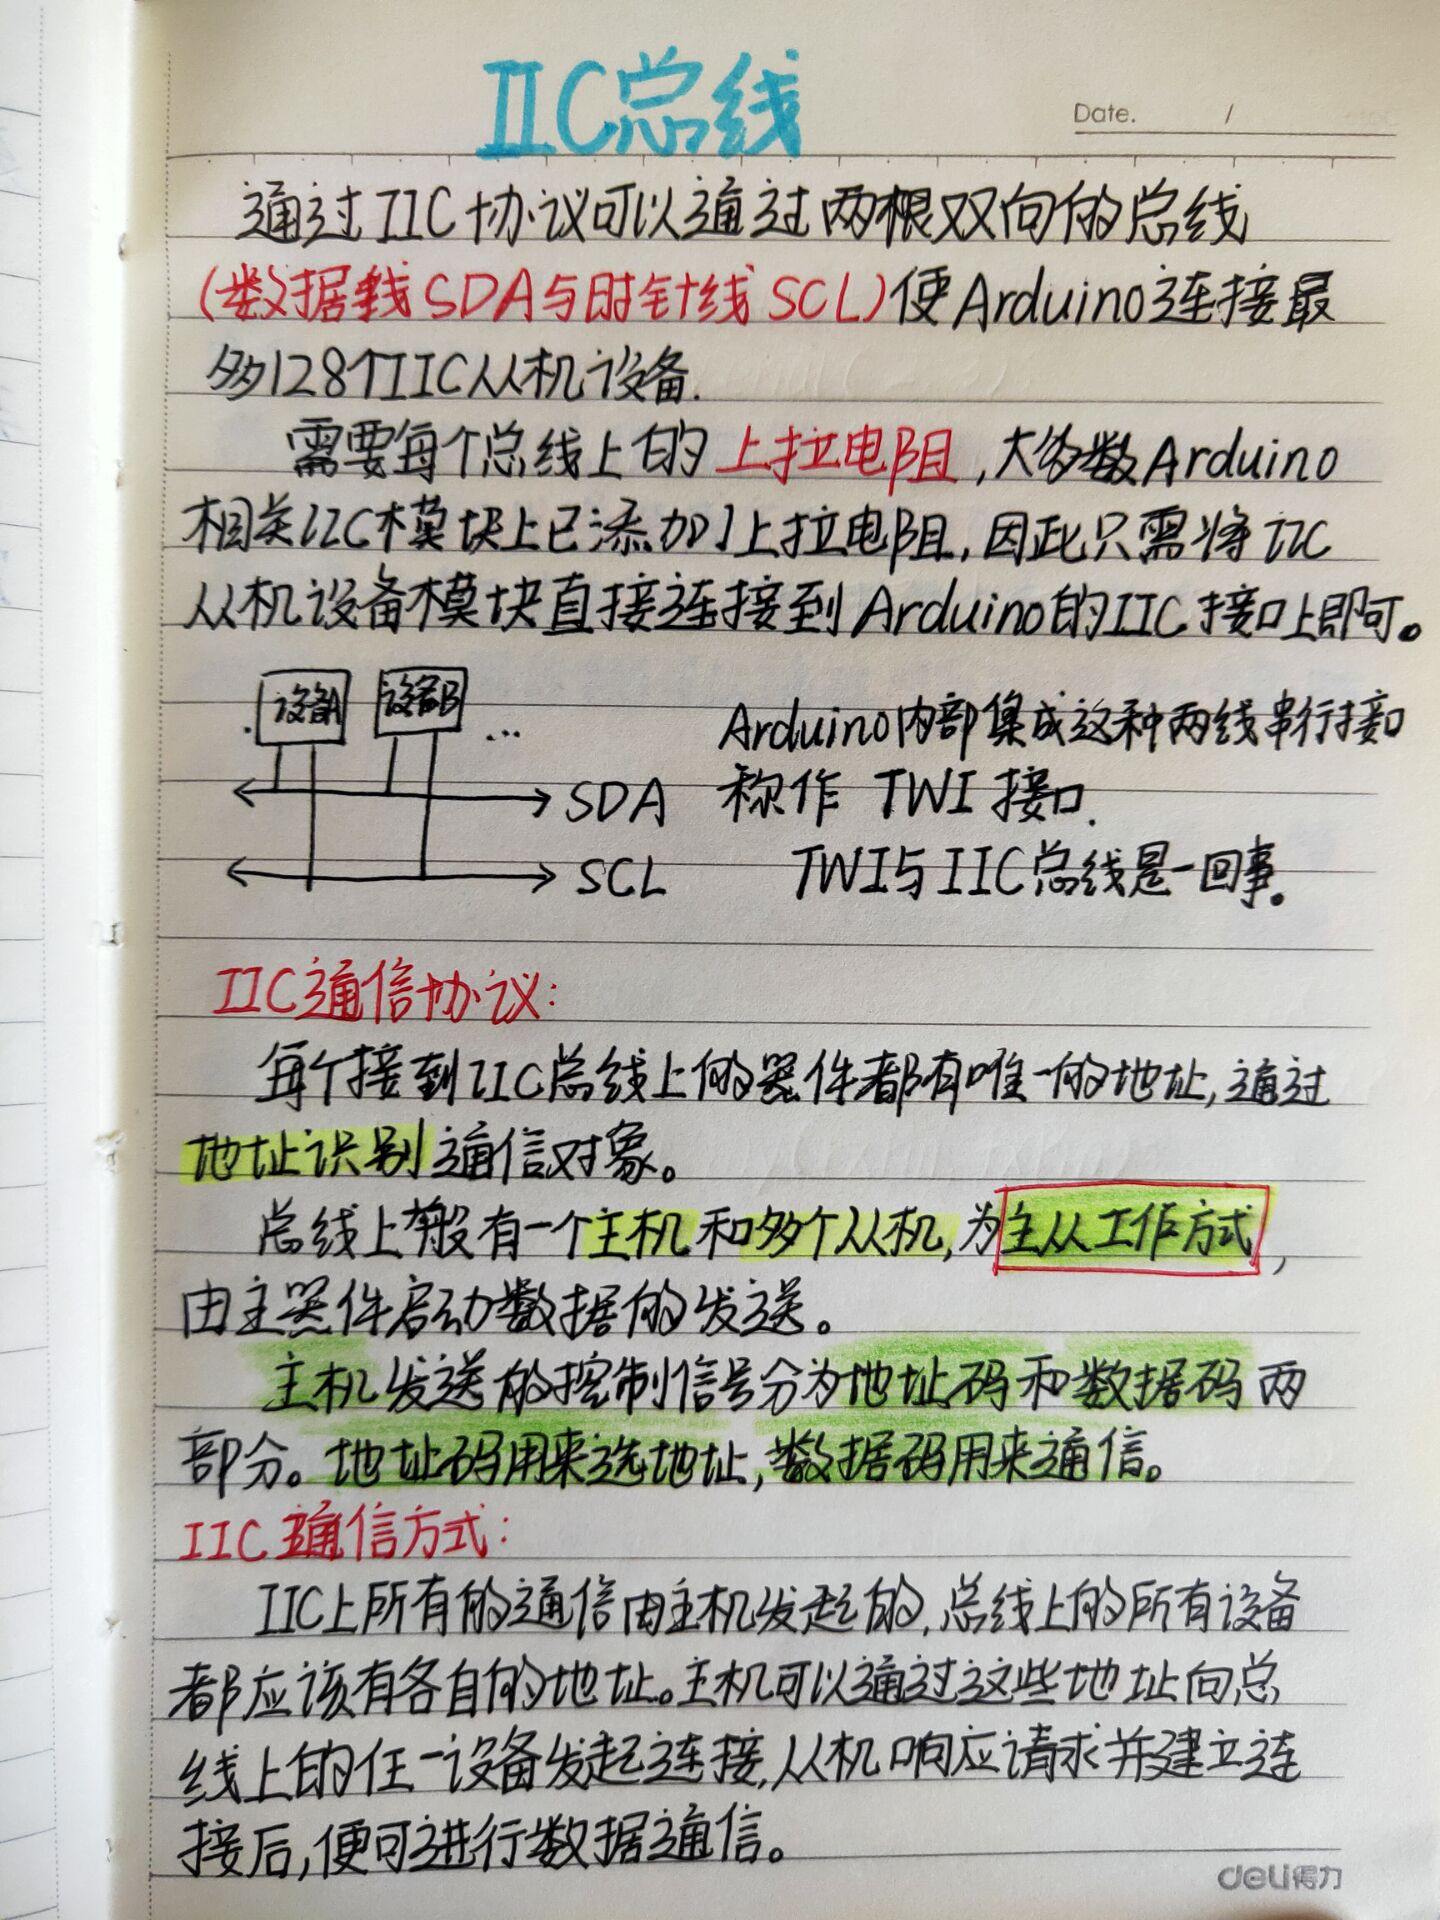 IIC总线
Date. /
通过IIC协议可以通过两根双向的总线
(数据线SDA与时针线SCL)使Arduino连接最
多128个IIC从机设备.
需要每个总线上的上拉电阻,大多数Arduino
相关IIC模块上已添加了上拉电阻,因此只需将IIC
从机设备模块直接连接到Arduino的IIC接口上即可。
设备A 设备B ...
Arduino内部集成这种两线串行接口
SDA 称作 TWI 接口.
SCL TWI与IIC总线是一回事。
IIC通信协议:
每个接到IIC总线上的器件都有唯一的地址,通过
地址识别通信对象。
总线上一般有一个主机和多个从机,为主从工作方式,
由主器件启动数据的发送。
主机发送的控制信号分为地址码和数据码两
部分。地址码用来选地址,数据码用来通信。
IIC通信方式:
IIC上所有的通信由主机发起的,总线上的所有设备
都应该有各自的地址。主机可以通过这些地址向总
线上的任一设备发起连接,从机响应请求并建立连
接后,便可进行数据通信。
deli得力